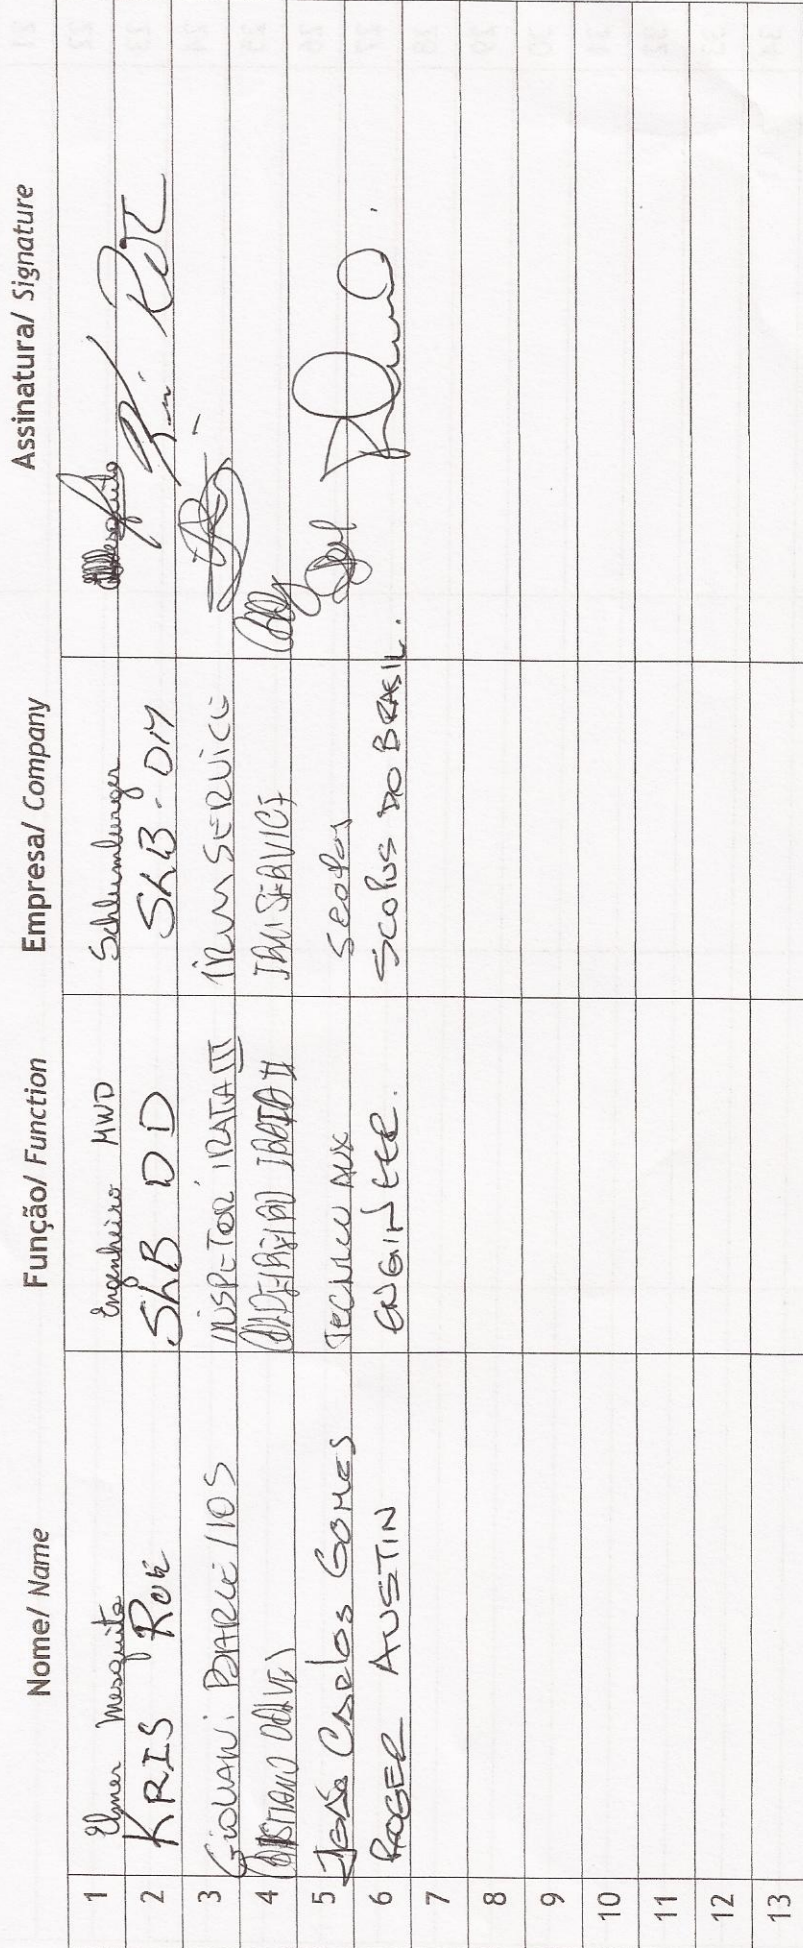 Nome/ Name Função/ Function Empresa/ Company Assinatura/ Signature
1 Elmer Mesquita Engenheiro MWD Schlumberger Mesquita
2 KRIS ROE SLB DD SLB - DM Kris Roe
3 GIOVANI INSPETOR IRATA III IRM SERVICE
4 IRATA II IRM SERVICE
5 João Carlos Gomes TECNICO AUX SCOPUS
6 ROGER AUSTIN ENGINEER. SCOPUS DO BRASIL.
7
8
9
10
11
12
13